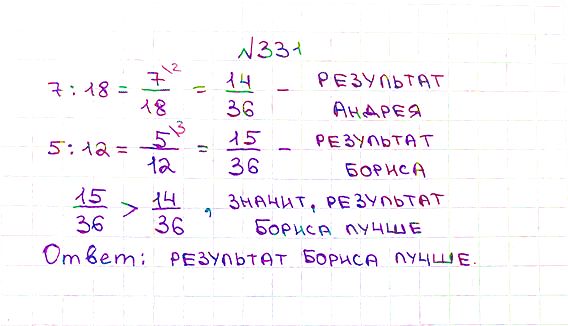 №331
7 : 18 = 7\2/18 = 14/36 – РЕЗУЛЬТАТ АНДРЕЯ
5 : 12 = 5\3/12 = 15/36 – РЕЗУЛЬТАТ БОРИСА
15/36 > 14/36, ЗНАЧИТ, РЕЗУЛЬТАТ
БОРИСА ЛУЧШЕ
Ответ: РЕЗУЛЬТАТ БОРИСА ЛУЧШЕ.